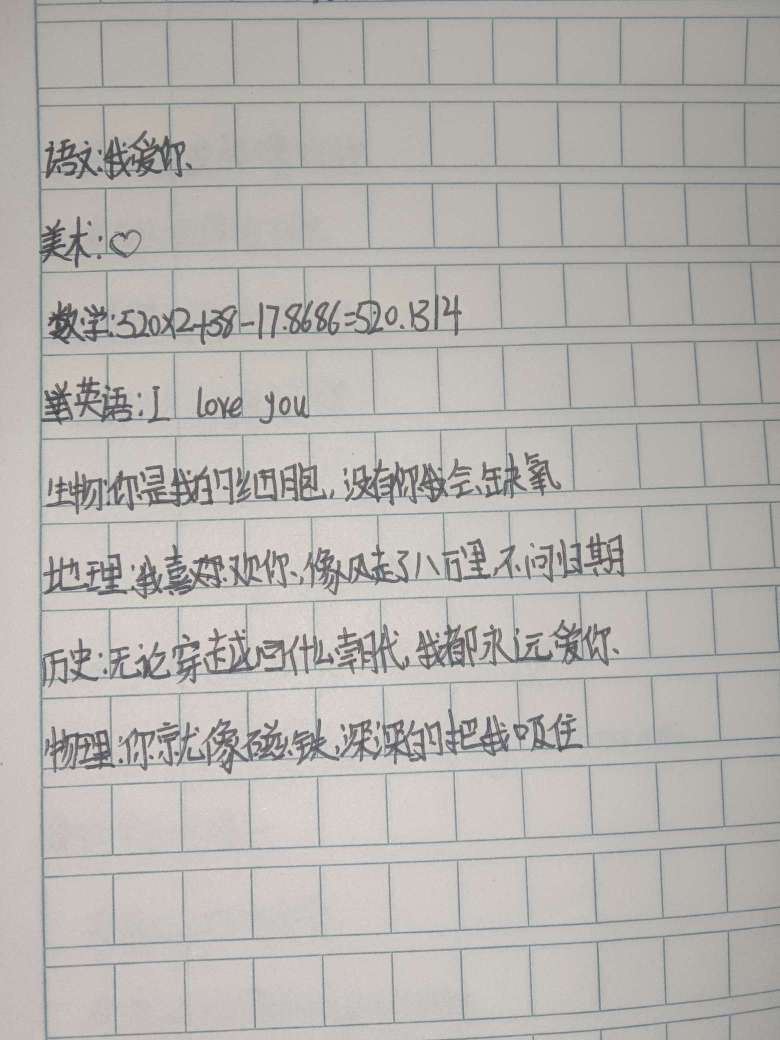 语文:我爱你、
美术:♡
数学:520×2+38-17.8686=520.1314
英语:I love you
生物:你是我的细胞,没有你我会缺氧
地理:我喜欢你,像风走了八百里,不问归期
历史:无论穿越回什么朝代,我都永远爱你、
物理:你就像磁铁,深深的把我吸住